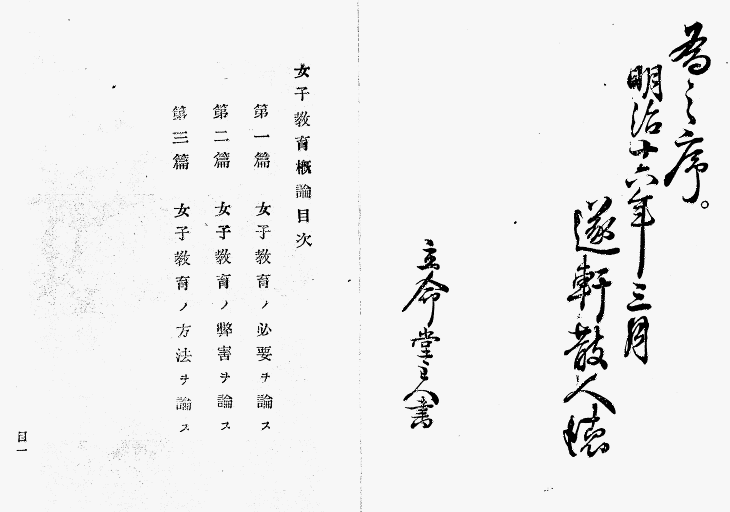 為之序。
明治十六年三月
遂軒散人
立命堂主人書
女子教育概論目次
第一篇 女子教育ノ必要ヲ論ス
第二篇 女子教育ノ弊害ヲ論ス
第三篇 女子教育ノ方法ヲ論ス
目一